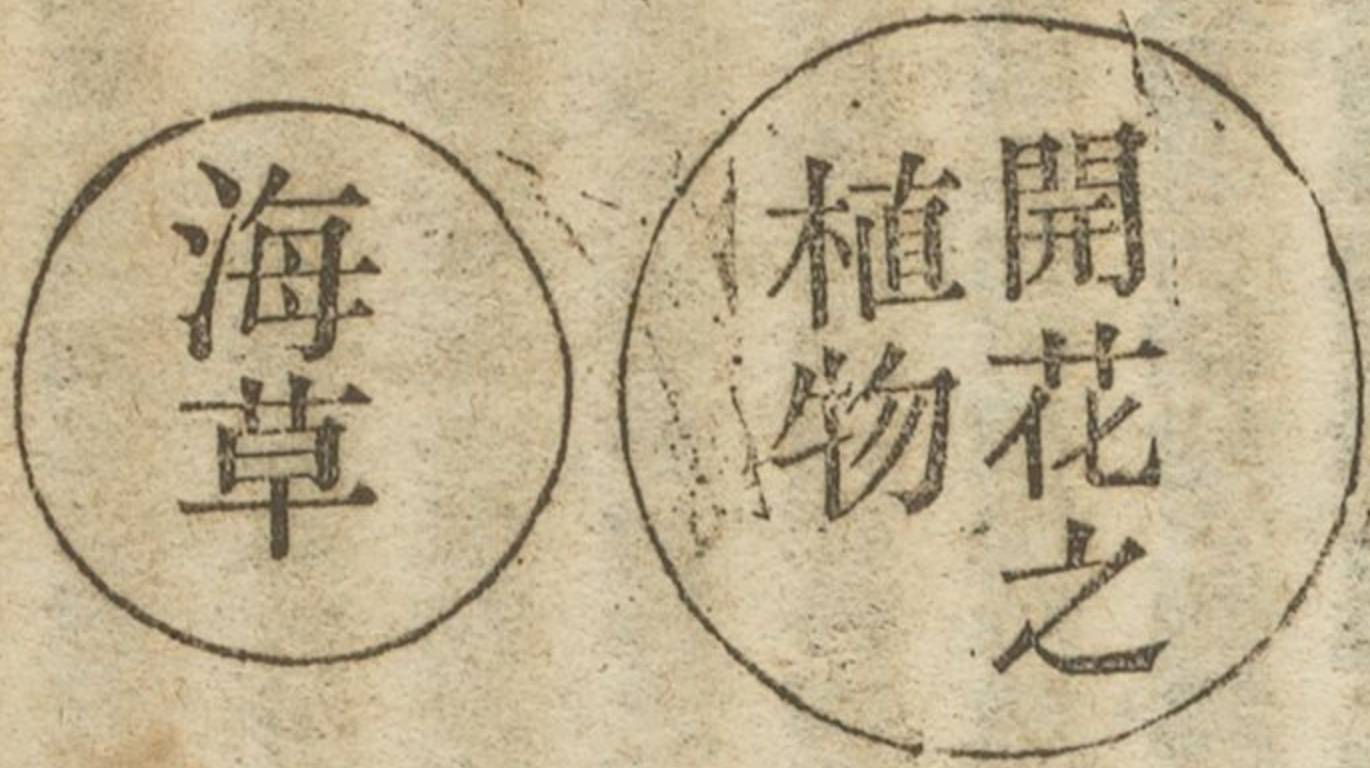 開花之
植物
海草